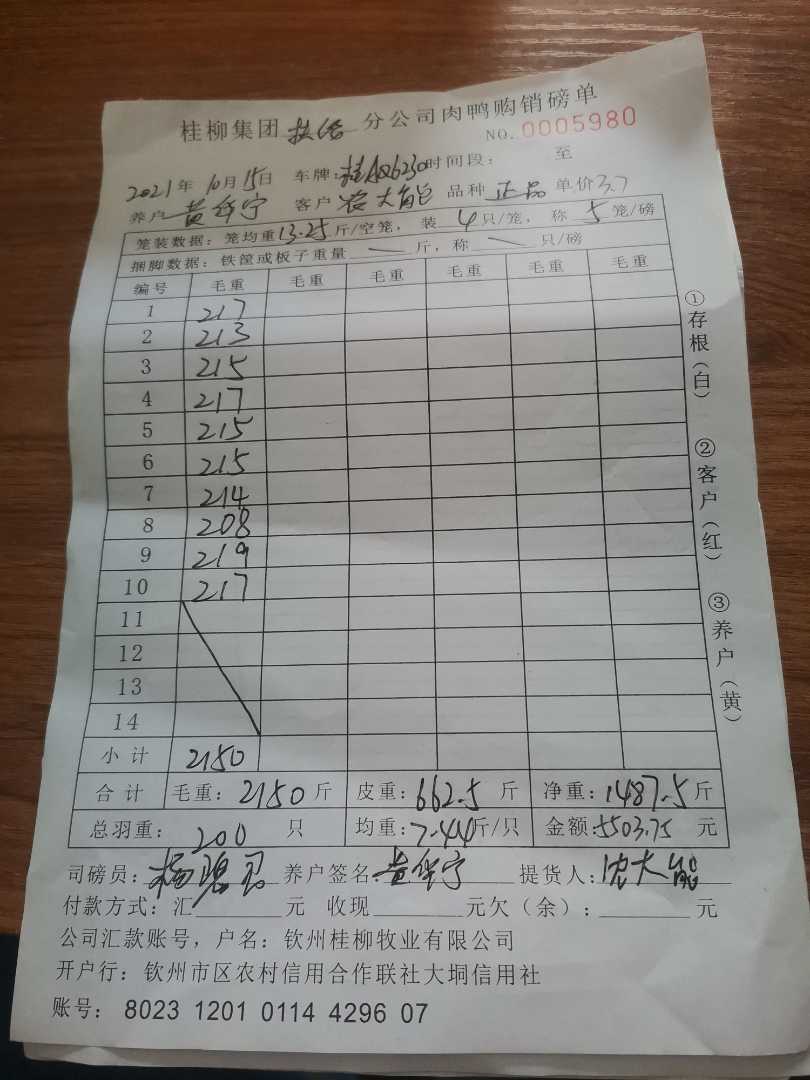 桂柳集团 分公司肉鸭购销磅单
NO. 0005980
2021年 10月 15日 车牌:桂A86230 时间段: 至
养户 黄华宁 客户 大能 品种 正品 单价 3.7
笼装数据: 笼均重 13.25 斤/空笼, 装 4 只/笼, 称 5 笼/磅
捆脚数据: 铁筐或板子重量 — 斤, 称 — 只/磅
编号 毛重 毛重 毛重 毛重 毛重 毛重
1 217
2 213
3 215
4 217
5 215
6 215
7 214
8 208
9 219
10 217
11
12
13
14
小计 2150
合计 毛重: 2150 斤 皮重: 662.5 斤 净重: 1487.5 斤
总羽重: 200 只 均重: 7.44 斤/只 金额: 5503.75 元
司磅员: 杨 养户签名: 黄华宁 提货人: 大能
付款方式: 汇 元 收现 元欠（余）: 元
公司汇款账号, 户名: 钦州桂柳牧业有限公司
开户行: 钦州市区农村信用合作联社大垌信用社
账号: 8023 1201 0114 4296 07
①存根（白）
②客户（红）
③养户（黄）